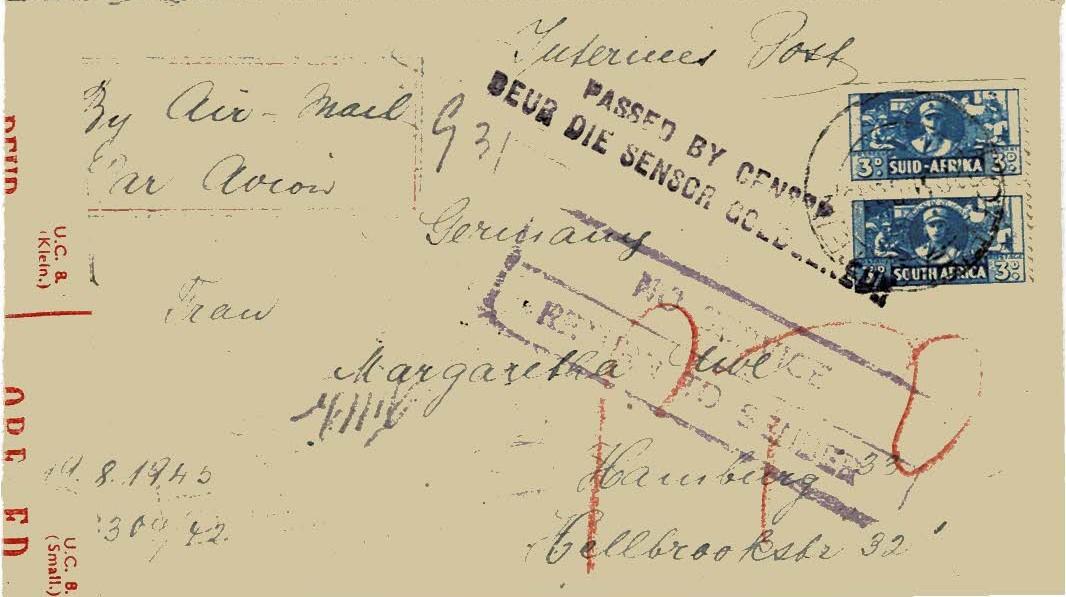 Internees Post
By Air-Mail
Par Avion
G 31
PASSED BY CENSOR
DEUR DIE SENSOR GOED
3D SUID-AFRIKA 3D
SOUTH AFRICA 3D
Germany
Frau
NO SERVICE
RETURN TO SENDER
Margaretha
Hamburg 33
Hellbrookstr 32
8.1945
DEUR
U.C. 8.
(Klein.)
U.C. 8.
(Small.)